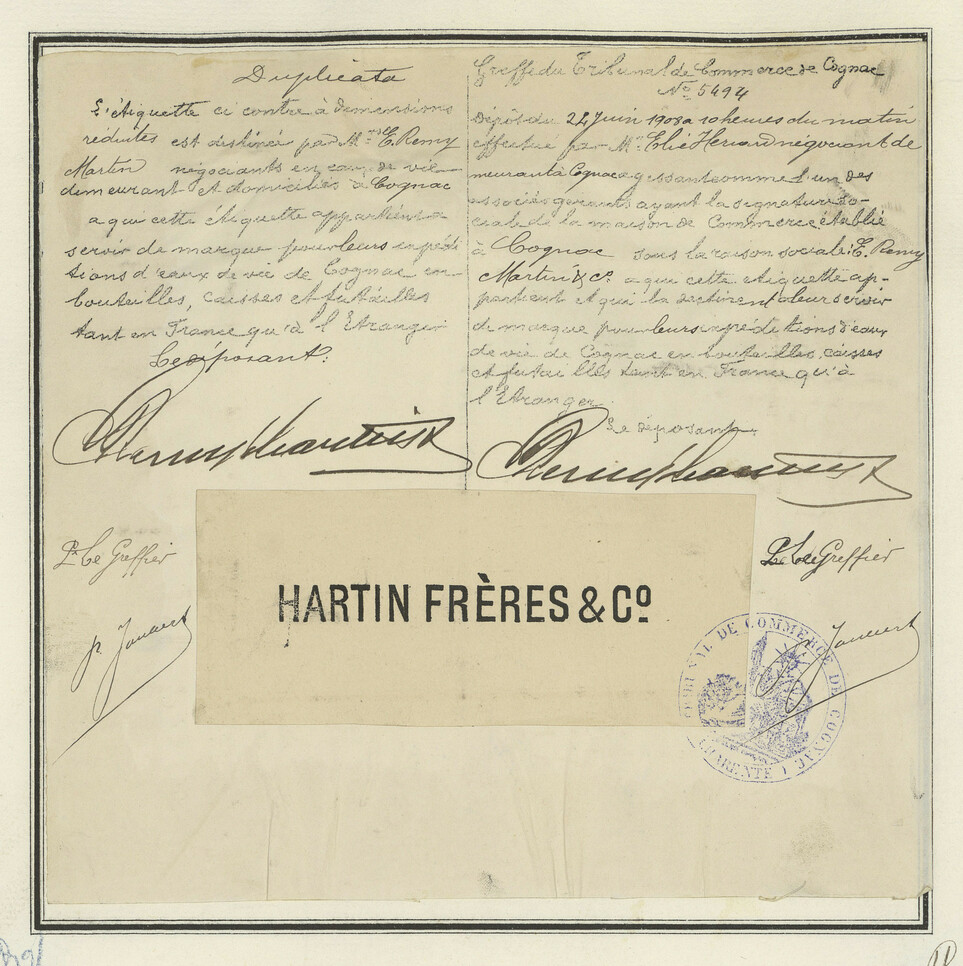 Duplicata
L'étiquette ci contre à dimensions
réduites est destinée par Mrs E. Remy
Martin négociants en eau de vie
demeurant et domiciliés à Cognac
a qui cette étiquette appartient a
servir de marque pour leurs expédi
tions d'eaux de vie de Cognac en
bouteilles, caisses et futailles
tant en France qu'à l'Etranger
Le déposant:
P. Le Greffier
Greffe du Tribunal de Commerce de Cognac
No 5494
Dépôt du 24 Juin 1908 a 10 heures du matin
effectué par Mr Elie Heriard négociant de
meurant à Cognac agissant comme l'un des
associés gérants ayant la signature so-
ciale de la maison de Commerce établie
à Cognac sous la raison sociale: E. Remy
Martin & Co a qui cette etiquette ap-
partient et qui la destinent a leur servir
de marque pour leurs expéditions d'eaux
de vie de Cognac en bouteilles, caisses
et futailles tant en France qu'à
l'Etranger.
Le déposant
P. Le Greffier
HARTIN FRÈRES & Co
TRIBUNAL DE COMMERCE DE COGNAC
CHARENTE